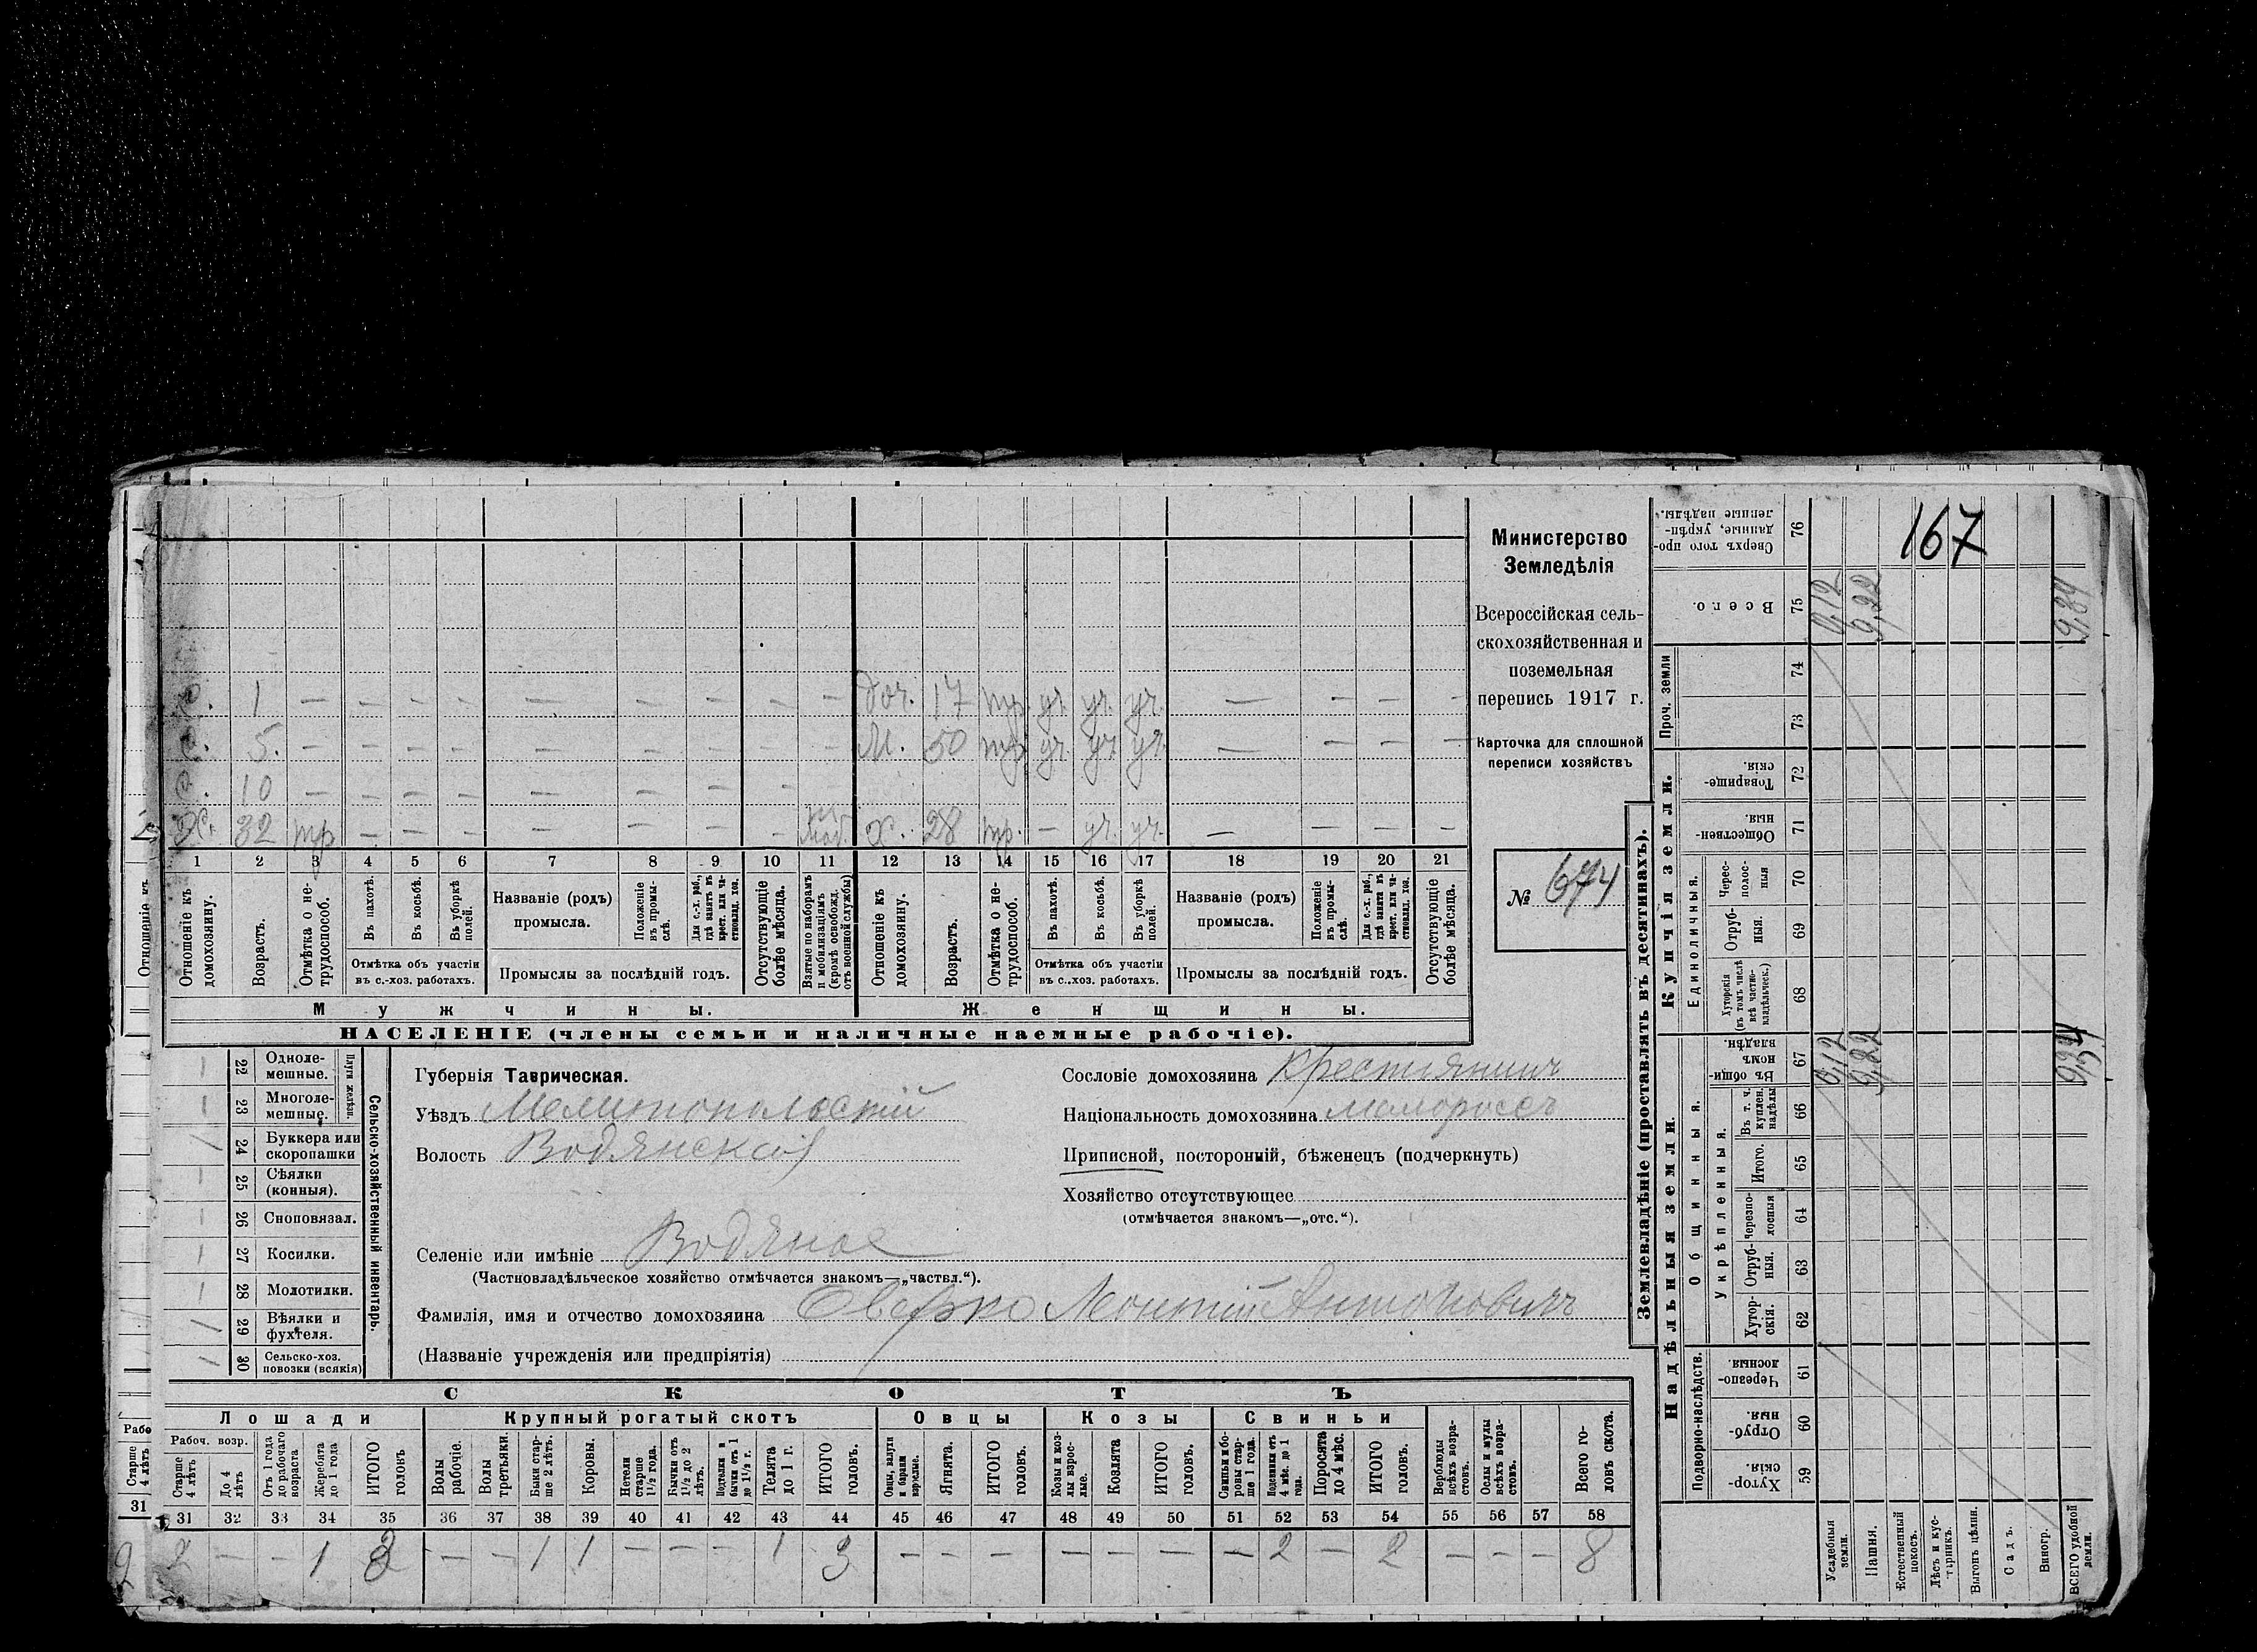 167
Министерство
Земледѣлія
Всероссійская сель-
скохозяйственная и
поземельная
перепись 1917 г.
Карточка для сплошной
переписи хозяйствъ
№ 674
1 — — — — — — — — — доч. 17 тр. уч. уч. уч. — — — —
С. 5. — — — — — — — — — М. 50 тр. уч. уч. уч. — — — —
С. 10 — — — — — — — —
Х. 32 тр — — — — — — — моб. Х. 28 тр. — уч. уч. — — — —
1 2 3 4 5 6 7 8 9 10 11 12 13 14 15 16 17 18 19 20 21
Отношеніе къ домохозяину.
Возрастъ.
Отмѣтка о не-трудоспособ.
Въ пахотѣ.
Въ косьбѣ.
Въ уборкѣ полей.
Названіе (родъ) промысла.
Положеніе въ промы-слѣ.
Для с.-х. раб., гдѣ занятъ въ крест. или ча-стновлад. хоз.
Отсутствующіе болѣе мѣсяца.
Взятые по наборамъ и мобилизаціямъ (кромѣ освобожд. отъ военной службы)
Отношеніе къ домохозяину.
Возрастъ.
Отмѣтка о не-трудоспособ.
Въ пахотѣ.
Въ косьбѣ.
Въ уборкѣ полей.
Названіе (родъ) промысла.
Положеніе въ промы-слѣ.
Для с.-х. раб., гдѣ занята въ крест. или ча-стновлад. хоз.
Отсутствующіе болѣе мѣсяца.
Отмѣтка объ участіи въ с.-хоз. работахъ.
Промыслы за послѣдній годъ.
Отмѣтка объ участіи въ с.-хоз. работахъ.
Промыслы за послѣдній годъ.
Мужчины.
Женщины.
НАСЕЛЕНІЕ (члены семьи и наличные наемные рабочіе).
Сельско-хозяйственный инвентарь.
Плуги желѣзн.
22 Одноле-мешные.
23 Многоле-мешные.
24 Буккера или скоропашки
25 Сѣялки (конныя).
26 Сноповязал.
27 Косилки.
28 Молотилки.
29 Вѣялки и фухтеля.
30 Сельско-хоз. повозки (всякія)
Губернія Таврическая.
Уѣздъ Мелитопольскій
Волость Водянская
Селеніе или имѣніе Водяное
(Частновладѣльческое хозяйство отмѣчается знакомъ—„частвл.“).
Фамилія, имя и отчество домохозяина Оверко Леонтій Антоновичъ
(Названіе учрежденія или предпріятія)
Сословіе домохозяина крестиянинъ
Національность домохозяина малороссъ
Приписной, посторонній, бѣженецъ (подчеркнуть)
Хозяйство отсутствующее
(отмѣчается знакомъ—„отс.“).
СКОТЪ
Лошади
Крупный рогатый скотъ
Овцы
Козы
Свиньи
Рабоч. возр.
Старше 4 лѣтъ
До 4 лѣтъ
Отъ 1 года до рабочаго возраста
Жеребята до 1 года
ИТОГО головъ
Волы рабочіе.
Волы третьяки.
Быки стар-ше 2 лѣтъ.
Коровы.
Нетели старше 1½ года.
Бычки отъ 1½ до 2 лѣтъ.
Подтелки и бычки отъ 1 до 1½ г.
Телята до 1 г.
ИТОГО головъ.
Овцы, валухи и бараны взрослые.
Ягнята.
ИТОГО головъ.
Козы и коз-лы взрос-лые.
Козлята
ИТОГО головъ.
Свиньи и бо-ровы стар-ше 1 года.
Подсвинки отъ 4 мѣс. до 1 года.
Поросята до 4 мѣс.
ИТОГО головъ.
Верблюды всѣхъ возра-стовъ.
Ослы и мулы всѣхъ возра-стовъ.
Всего го-ловъ скота.
31 32 33 34 35 36 37 38 39 40 41 42 43 44 45 46 47 48 49 50 51 52 53 54 55 56 57 58
2 — — 1 3 — — 1 1 — — — 1 3 — — — — — — — 2 — 2 — — — 8
Землевладѣніе (проставлять въ десятинахъ).
Надѣльныя земли.
Купчія земли.
Проч. земли
Подворно-наслѣдств.
Общинныя.
Укрѣпленныя.
Единоличныя.
59 Хутор-скія
60 Отруб-ныя.
61 Черезпо-лосныя
62 Хутор-скія.
63 Отруб-ныя.
64 Черезпо-лосныя
65 Итого.
66 Въ т. ч. куплен. надѣлы
67 Въ общи-номъ владѣн.
68 Хуторскія (въ томъ числѣ всѣ частно-владѣльческ.)
69 Отруб-ныя.
70 Черес-полос-ныя
71 Обществен-ныя.
72 Товарище-скія.
73
74
75 Всего.
76 Сверхъ того про-данные, укрѣп-ленные надѣлы.
Усадебныя земли. 0,12 0,12
Пашня. 9,22 9,22
Естественный покосъ.
Лѣсъ и кус-тарникъ.
Выгонъ цѣлин.
Садъ.
Виногр.
ВСЕГО удобной земли. 9,34
Отношеніе къ
Рабо
Старше 4 лѣтъ
31
2